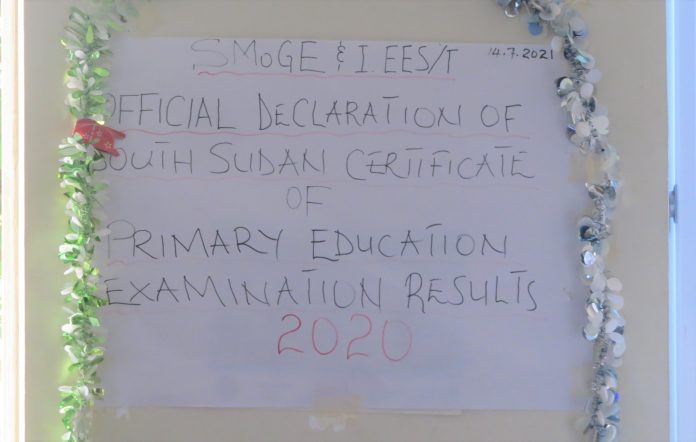 SMoGE & I. EES/T 14.7.2021
OFFICIAL DECLARATION OF
SOUTH SUDAN CERTIFICATE
OF
PRIMARY EDUCATION
EXAMINATION RESULTS
2020